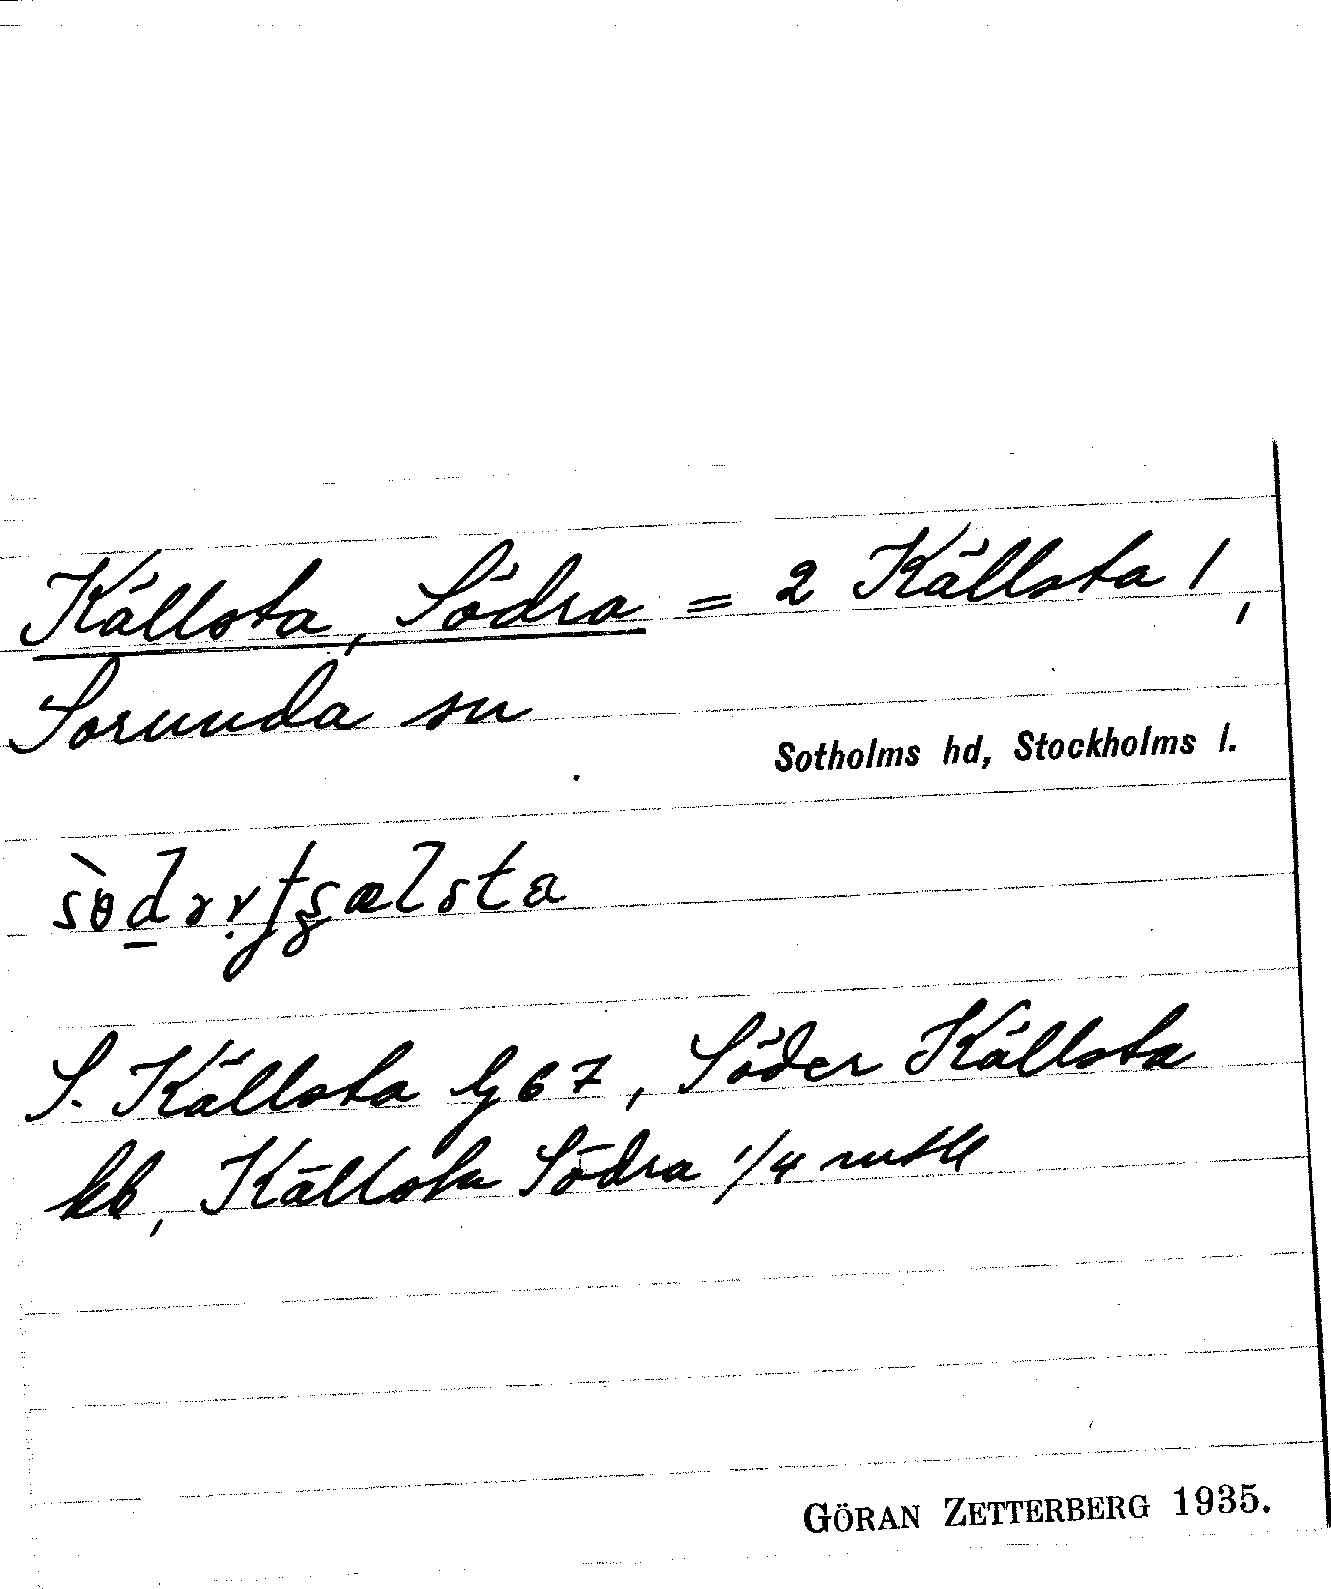 Källsta, Södra = 2 Källsta!,
Sorunda sn
Sotholms hd, Stockholms l.
S. Källsta Gj 67, Söder Källsta
kb, Källsta Södra 1/4 mtl
GÖRAN ZETTERBERG 1935.